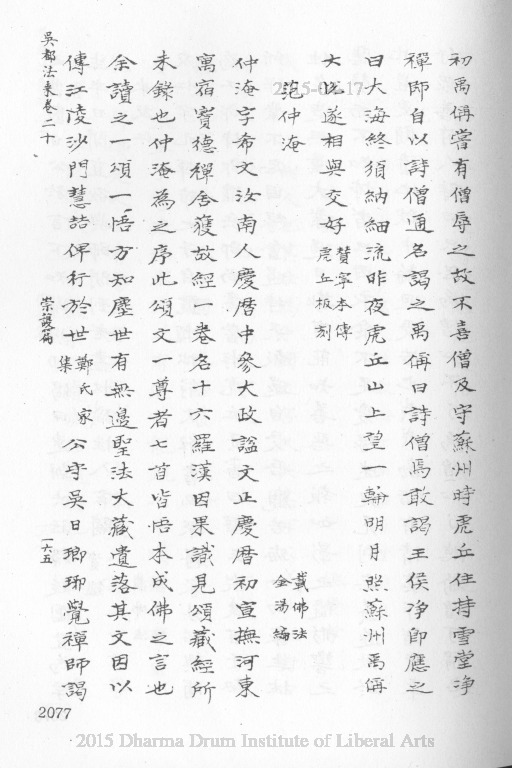 初禹偁嘗有僧辱之故不喜僧及守蘇州時虎丘住持雪堂淨
禪師自以詩僧通名謁之禹偁曰詩僧焉敢謁王侯净即應之
曰大海終須納細流昨夜虎丘山上望一輪明月照蘇州禹偁
大悅遂相與交好 贊寧本傳 虎丘板刻
范仲淹 載佛法 金湯編
仲淹字希文汝南人慶曆中參大政謚文正慶曆初宣撫河東
寓宿寶德禪舍獲故經一卷名十六羅漢因果識見頌藏經所
未錄也仲淹為之序此頌文一尊者七首皆悟本成佛之言也
余讀之一頌一悟方知塵世有無邊聖法大藏遺落其文因以
傳江陵沙門慧喆俾行於世 鄭氏家集 公守吳日瑯琊覺禪師謁
吳都法乘卷二十 崇護篇 一六五
2077
2015 Dharma Drum Institute of Liberal Arts